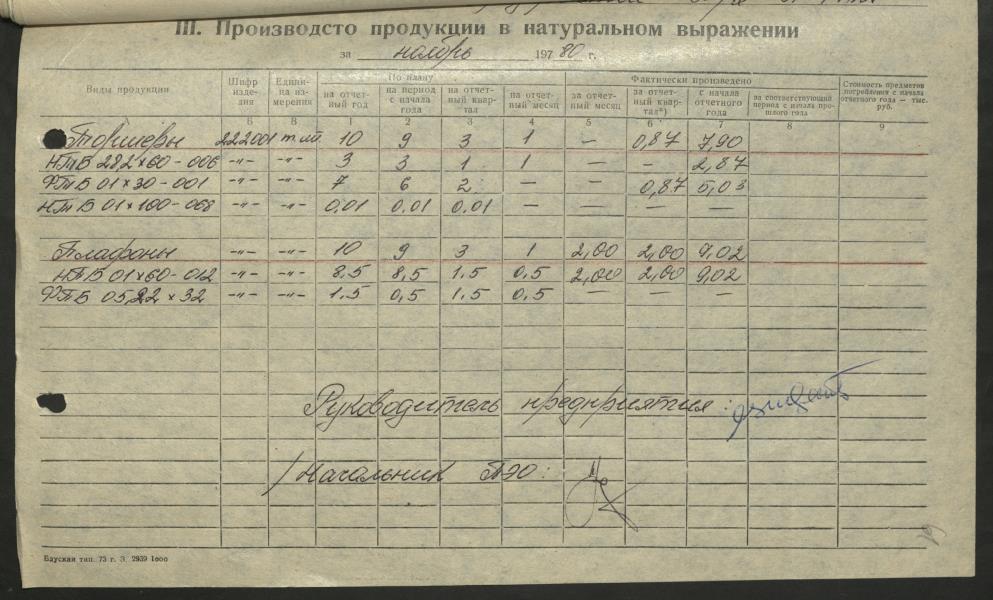 III. Производсто продукции в натуральном выражении
за ноябрь 197 80 г.
Виды продукции Шифр изде- дия Едини- ца из- мерения По плану Фактически произведено Стоимость предметов потребления с начала отчетного года — тыс. руб.
на отчет- ный год на период с начала года на отчет- ный квар- тал на отчет- ный месяц за отчет- ный месяц за отчет- ный квар- тал*) с начала отчетного года за соответствующий период с начала про- шлого года
А Б В 1 2 3 4 5 6 7 8 9
Торшеры 222001 т.шт. 10 9 3 1 — 0,87 7,90
НТБ 28,2×60-006 -"- -"- 3 3 1 1 — — 2,87
ФТБ 01×30-001 -"- -"- 7 6 2 — — 0,87 5,03
НТБ 01×100-068 -"- -"- 0.01 0.01 0.01 — — — —
Плафоны -"- -"- 10 9 3 1 2,00 2,00 9,02
НПБ 01×60-012 -"- -"- 8.5 8,5 1.5 0.5 2,00 2,00 9,02
ФПБ 05,22×32 -"- -"- 1.5 0,5 1.5 0.5 — — —
Руководитель предприятия
/ Начальник ПЭО:
Бауская тип. 73 г. З. 2939 1000